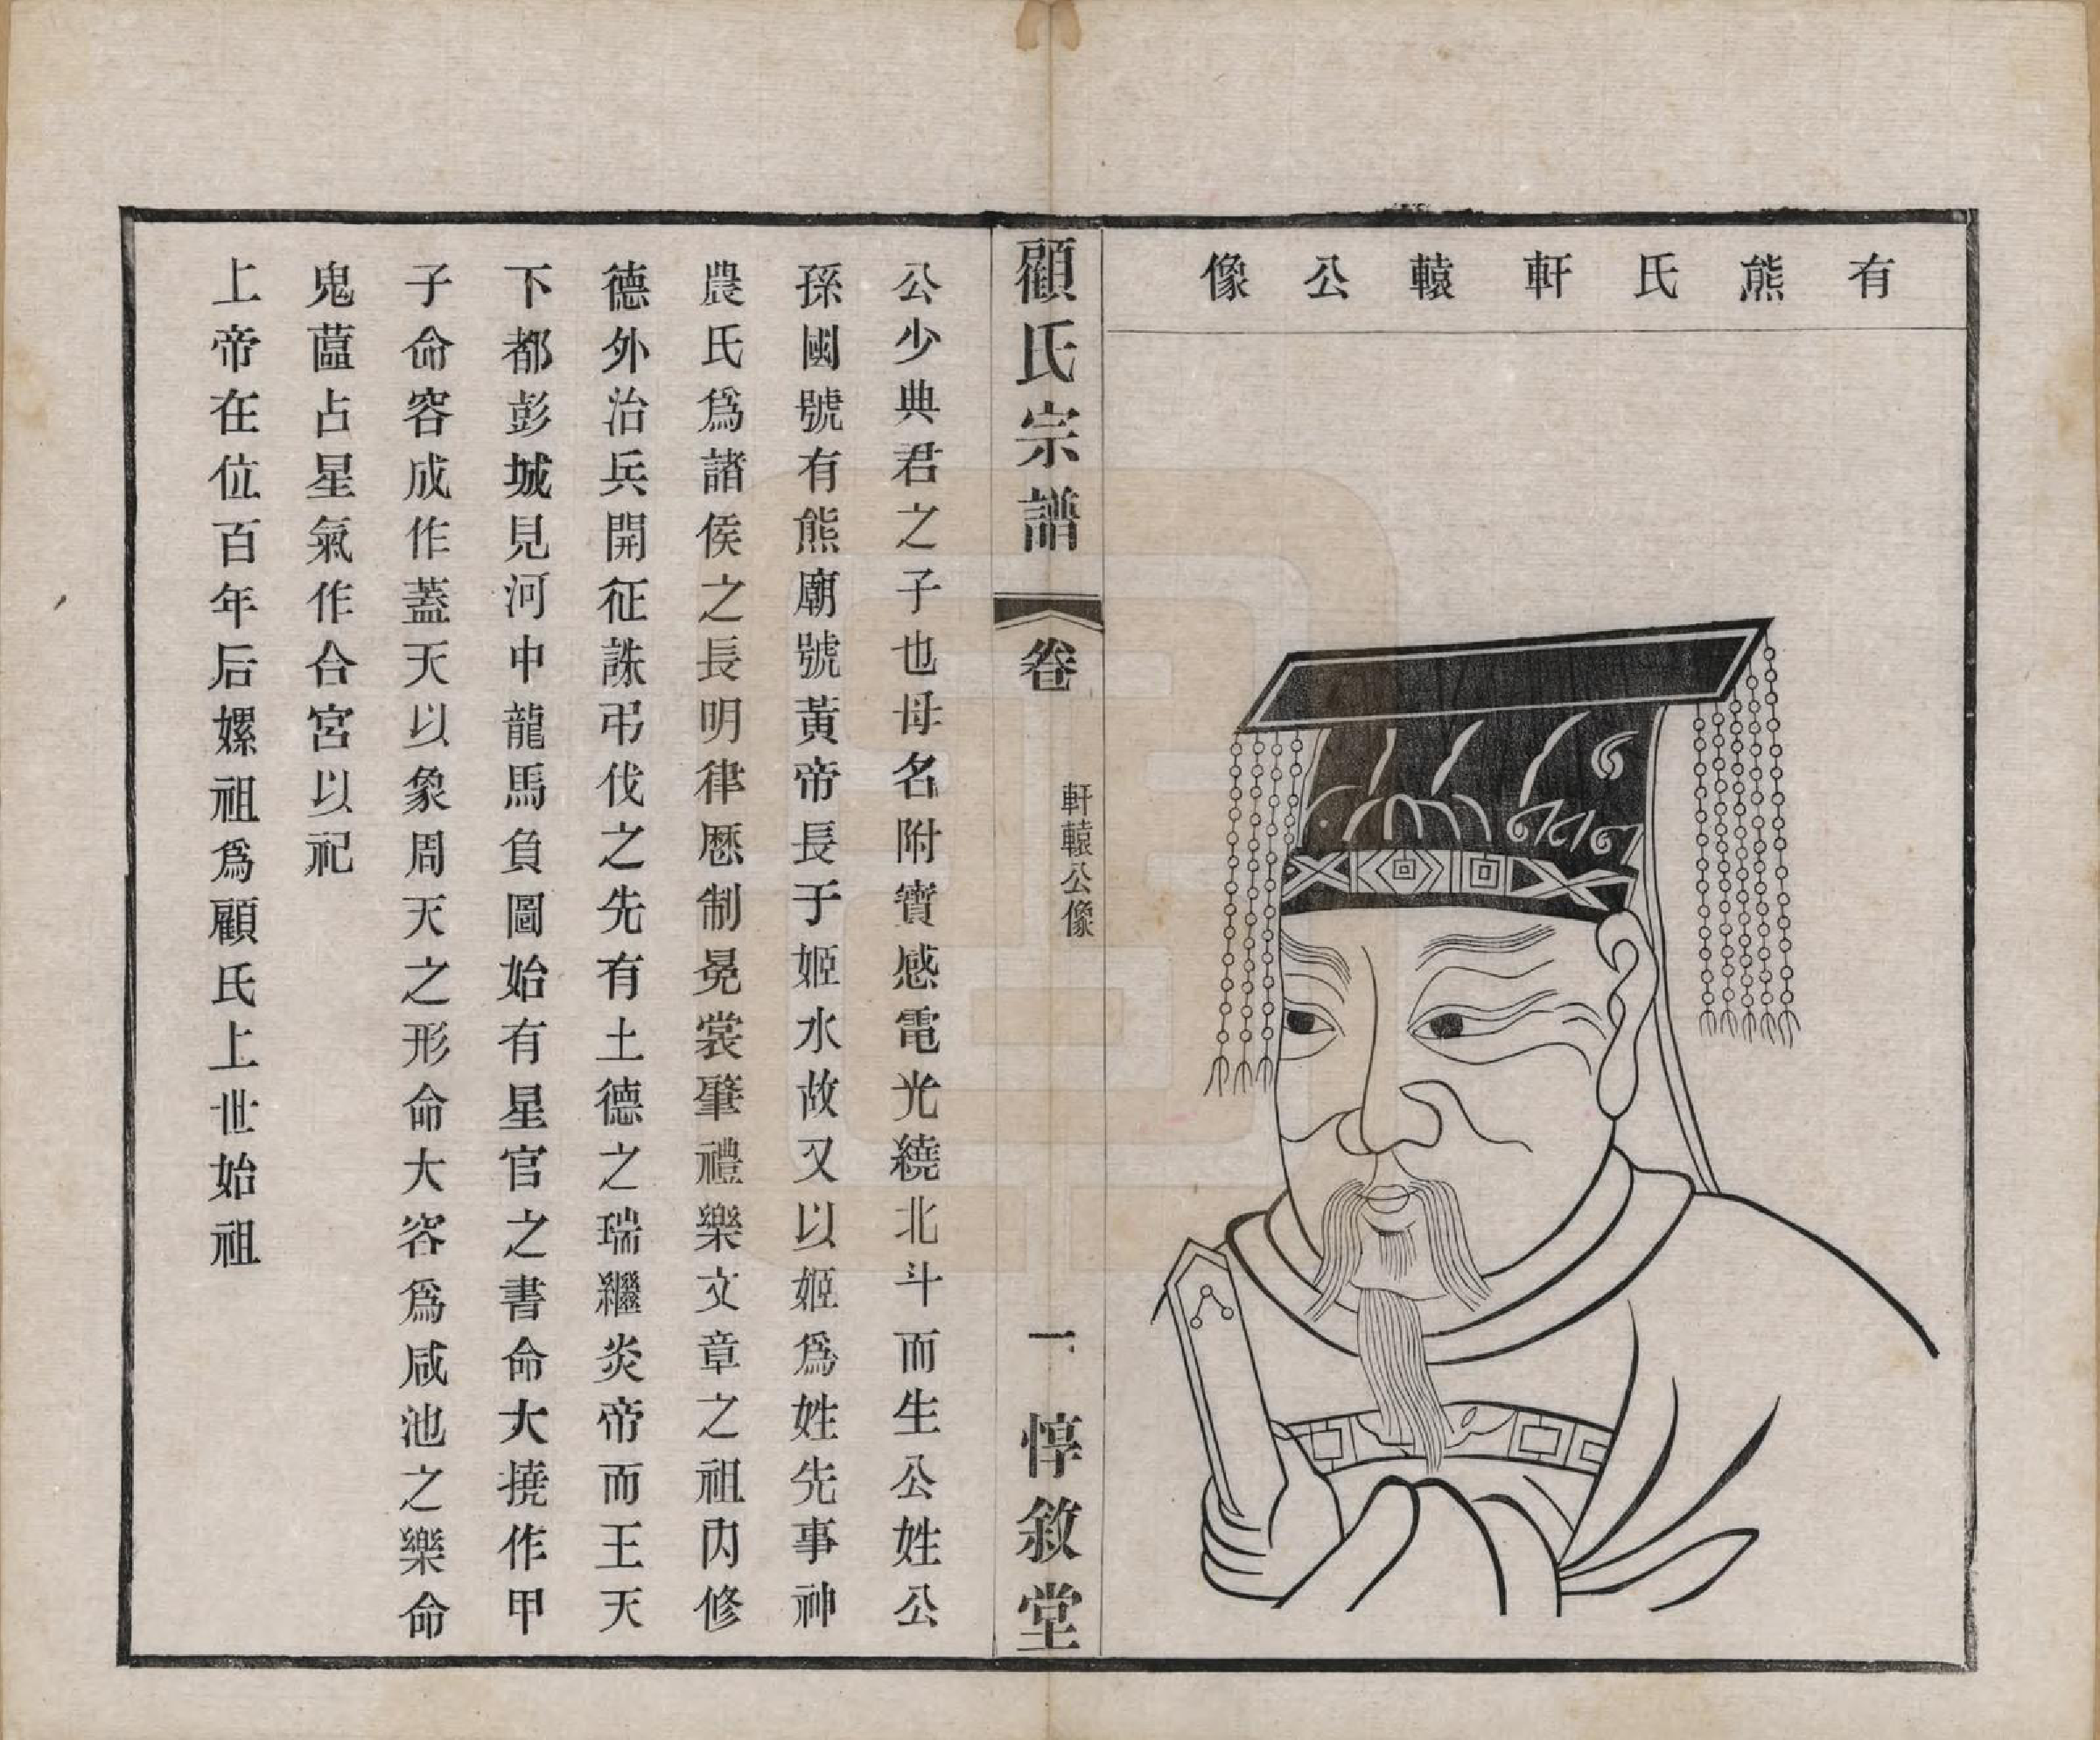 有熊氏軒轅公像
顧氏宗譜
卷
軒轅公像
一
惇敘堂
公少典君之子也母名附寶感電光繞北斗而生公姓公
孫國號有熊廟號黃帝長于姬水故又以姬爲姓先事神
農氏爲諸侯之長明律厯制冕裳肇禮樂文章之祖內修
德外治兵開征誅弔伐之先有土德之瑞繼炎帝而王天
下都彭城見河中龍馬負圖始有星官之書命大撓作甲
子命容成作蓋天以象周天之形命大容爲咸池之樂命
鬼蓲占星氣作合宮以祀
上帝在位百年后嫘祖爲顧氏上世始祖